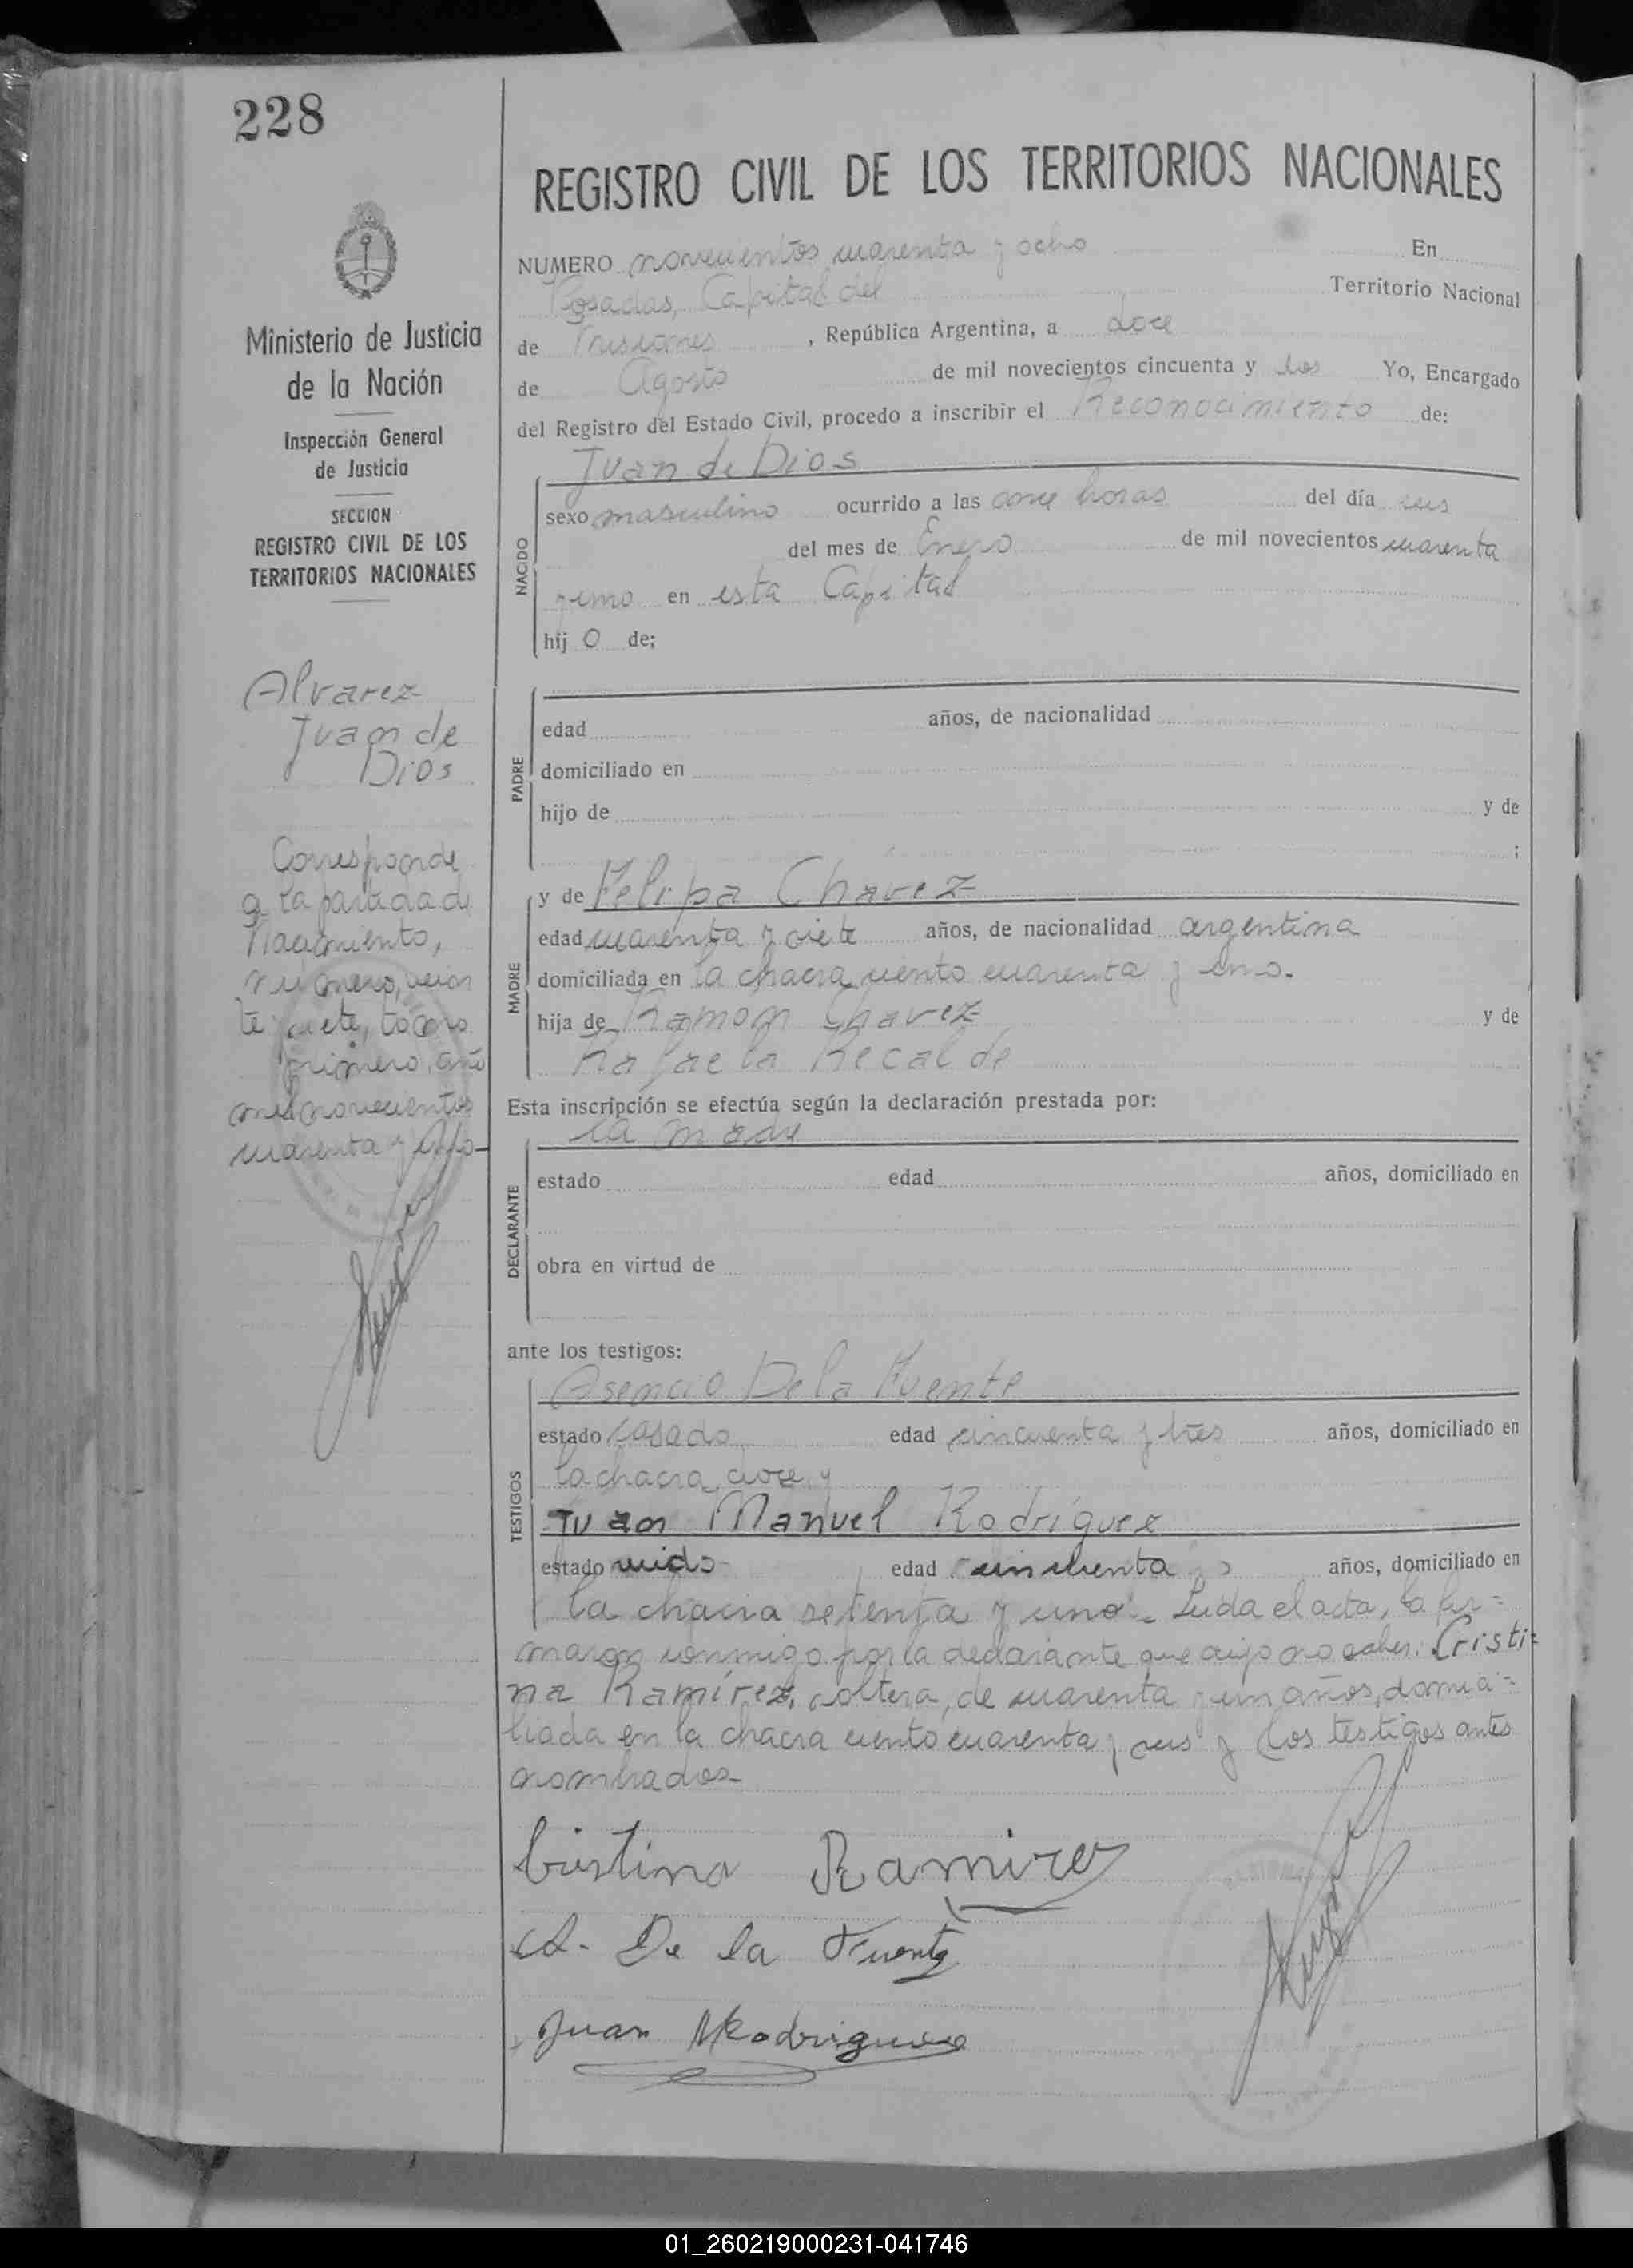 228
REGISTRO CIVIL DE LOS TERRITORIOS NACIONALES
NUMERO novecientos cuarenta y ocho En
Posadas, Capital del Territorio Nacional
de Misiones, República Argentina, a doce
de Agosto de mil novecientos cincuenta y dos Yo, Encargado
del Registro del Estado Civil, procedo a inscribir el Reconocimiento de:
Juan de Dios
sexo masculino ocurrido a las once horas del día seis
del mes de Enero de mil novecientos cuarenta
y uno en esta Capital
hij o de;
NACIDO
edad años, de nacionalidad
domiciliado en
hijo de y de
;
PADRE
y de Felipa Chavez
edad cuarenta y siete años, de nacionalidad argentina
domiciliada en la chacra ciento cuarenta y uno.
hija de Ramon Chavez y de
Rafaela Recalde
MADRE
Esta inscripción se efectúa según la declaración prestada por:
la madre
estado edad años, domiciliado en
obra en virtud de
DECLARANTE
ante los testigos:
Asencio De la Fuente
estado casado edad cincuenta y tres años, domiciliado en
la chacra doce y
Juan Manuel Rodríguez
estado viudo edad cincuenta años, domiciliado en
TESTIGOS
la chacra setenta y uno.- Leida el acta, la fir=
maron conmigo por la declarante que dijo no saber: Cristi=
na Ramírez, soltera, de cuarenta y un años, domici=
liada en la chacra ciento cuarenta y seis y los testigos antes
nombrados-
Cristina Ramirez
A. De la Fuente
Juan M Rodriguez
Ministerio de Justicia
de la Nación
Inspección General
de Justicia
SECCION
REGISTRO CIVIL DE LOS
TERRITORIOS NACIONALES
Alvarez
Juan de
Dios
Corresponde
a la partida de
Nacimiento,
número, vein
te y siete, tomo
primero, año
mil novecientos
cuarenta y
01_260219000231-041746